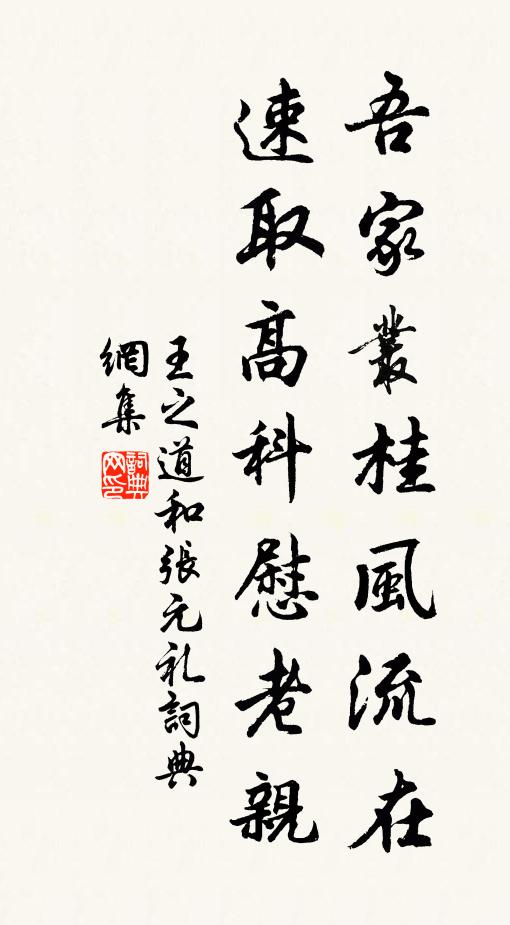 吾家叢桂風流在
速取高科慰老親
王之道和張元礼詞典
網集
詞典
网印